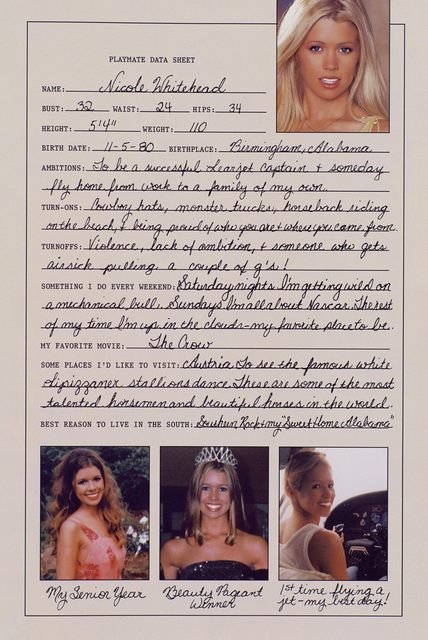 PLAYMATE DATA SHEET
NAME: Nicole Whitehead
BUST: 32 WAIST: 24 HIPS: 34
HEIGHT: 5'4" WEIGHT: 110
BIRTH DATE: 11-5-80 BIRTHPLACE: Birmingham, Alabama
AMBITIONS: To be a successful Learjet Captain + someday
fly home from work to a family of my own.
TURN-ONS: Cowboy hats, monster trucks, horseback riding
on the beach, & being proud of who you are & where you came from.
TURNOFFS: Violence, lack of ambition, + someone who gets
airsick pulling a couple of g's!
SOMETHING I DO EVERY WEEKEND: Saturday nights I'm getting wild on
a mechanical bull. Sundays I'm all about Nascar. The rest
of my time I'm up in the clouds-my favorite place to be.
MY FAVORITE MOVIE: The Crow
SOME PLACES I'D LIKE TO VISIT: Austria. To see the famous white
Lipizzaner stallions dance. These are some of the most
talented horsemen and beautiful horses in the world.
BEST REASON TO LIVE IN THE SOUTH: Southern Rock & my "Sweet Home Alabama"
My Senior Year
Beauty Pageant
Winner
1st time flying a
jet-my best day!